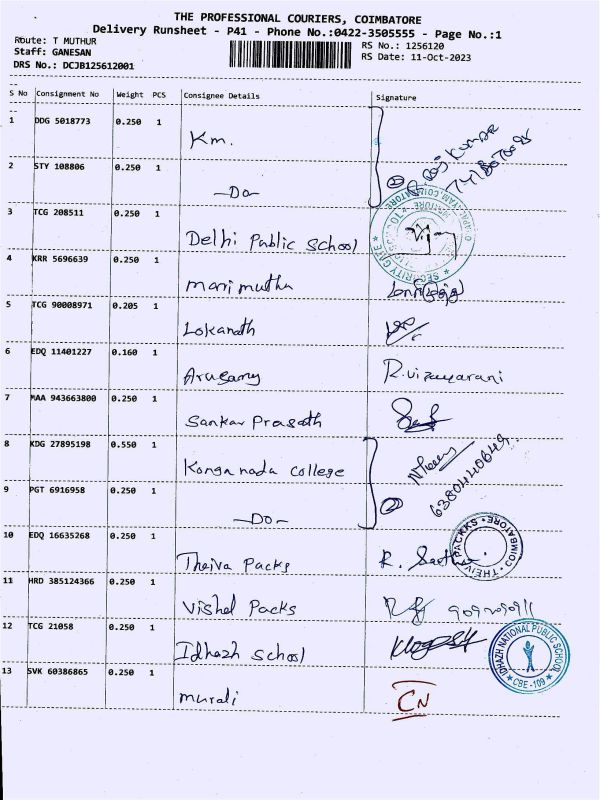 THE PROFESSIONAL COURIERS, COIMBATORE
Delivery Runsheet - P41 - Phone No.:0422-3505555 - Page No.:1
Route: T MUTHUR
RS No.: 1256120
Staff: GANESAN
RS Date: 11-Oct-2023
DRS No.: DCJB125612001
S No Consignment No Weight PCS Consignee Details Signature
1 DDG 5018773 0.250 1 Km.
2 STY 108806 0.250 1 -Do-
3 TCG 208511 0.250 1 Delhi Public School
SECURITY GATE
4 KRR 5696639 0.250 1 Marimuthu
5 TCG 90008971 0.205 1 Lokanath
6 EDQ 11401227 0.160 1 R.vijayarani
7 MAA 943663800 0.250 1 Sankar Prasath
8 KDG 27895198 0.550 1 Konganada college
6380440649
9 PGT 6916958 0.250 1 -Do-
10 EDQ 16635268 0.250 1 Theiva Packs
COIMBATORE
11 HRD 385124366 0.250 1 Vishal Packs
12 TCG 21058 0.250 1 Idhazh School
IDHAZH NATIONAL PUBLIC SCHOOL
CBE-109
13 SVK 60386865 0.250 1 murali CN